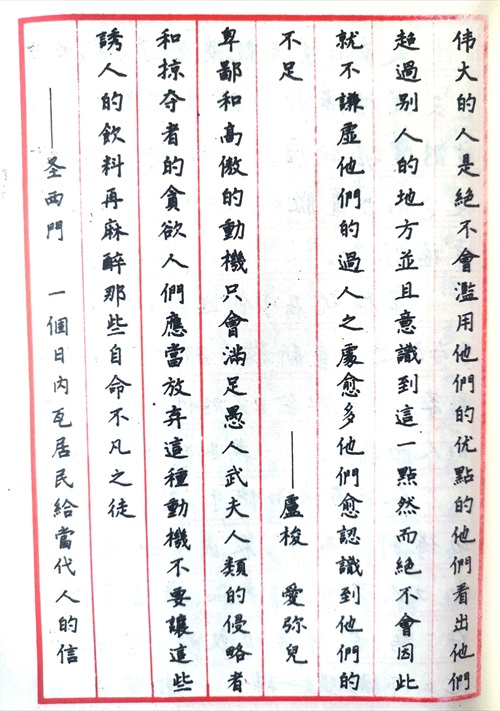 伟大的人是絕不會濫用他們的优點的他們看出他們
超過别人的地方並且意識到這一點然而絕不會因此
就不謙虛他們的過人之處愈多他們愈認識到他們的
不足
——盧梭 愛弥兒
卑鄙和高傲的動機只會滿足愚人武夫人類的侵略者
和掠夺者的貪欲人們應當放弃這種動機不要讓這些
誘人的飲料再麻醉那些自命不凡之徒
——圣西門 一個日内瓦居民給當代人的信